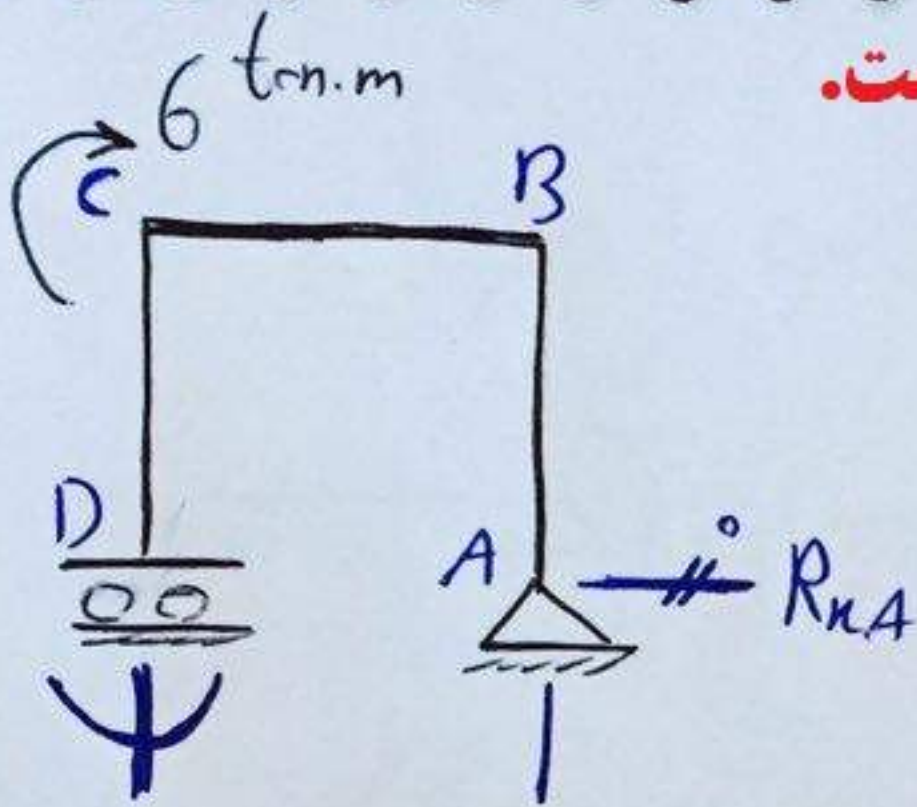 ست.
6 ton.m
C
B
D
A
0
RxA